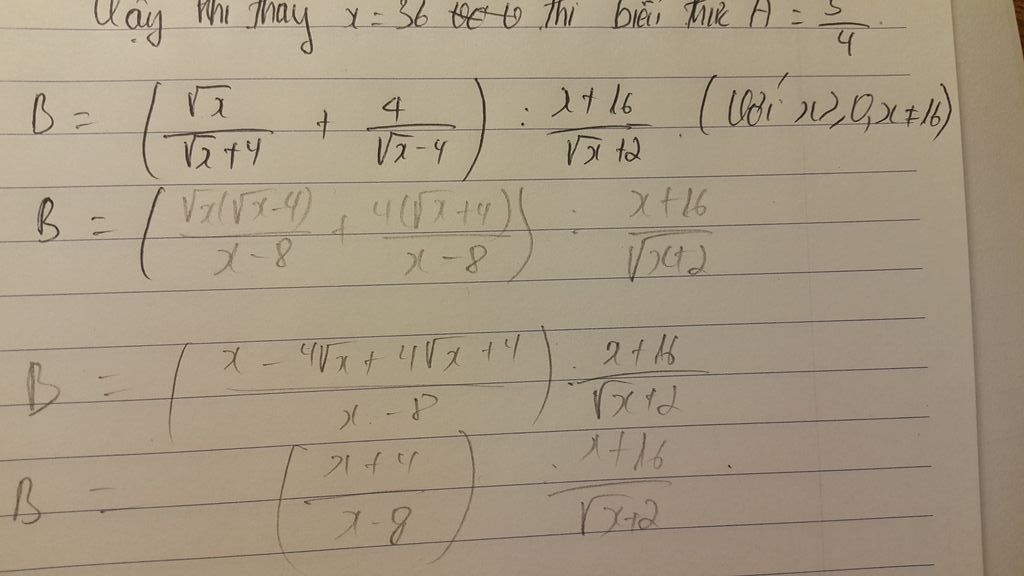 Vậy khi thay x = 36 thì biểu thức A = 5/4.
B = (√x/(√x+4) + 4/(√x-4)) : (x+16)/(√x+2). (Với x ≥ 0, x ≠ 16)
B = (√x(√x-4)/(x-8) + 4(√x+4)/(x-8)) : (x+16)/(√x+2)
B = ((x - 4√x + 4√x + 4)/(x-8)) : (x+16)/(√x+2)
B = ((x+4)/(x-8)) . (x+16)/(√x+2) .